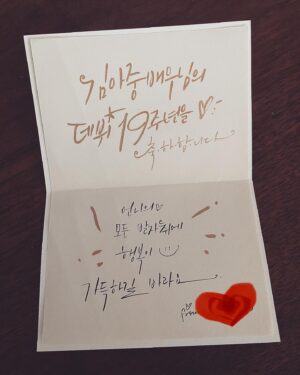 김아중 배우님의
데뷔 19주년을 ♡
축하합니다
언니의
모든 발자취에
행복이 :)
가득하길 바라요